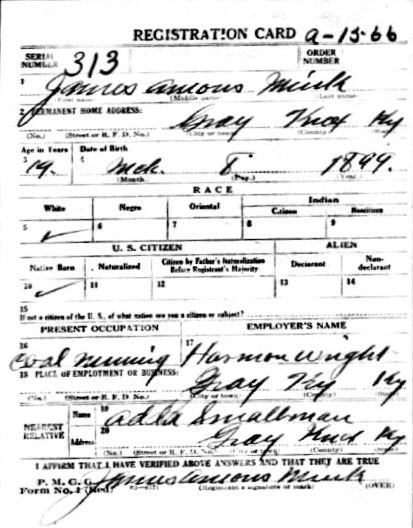 REGISTRATION CARD a-15-66
SERIAL NUMBER 313 ORDER NUMBER
1 James Amons Mink
(First name) (Middle name) (Last name)
2 PERMANENT HOME ADDRESS:
Gray Knox Ky
(No.) (Street or R. F. D. No.) (City or town) (County) (State)
Age in Years Date of Birth
3 19. 4 Mch. 8 1899.
(Month.) (Day.) (Year.)
RACE
White Negro Oriental Indian
Citizen Noncitizen
5 ✓ 6 7 8 9
U. S. CITIZEN ALIEN
Native Born Naturalized Citizen by Father's Naturalization Before Registrant's Majority Declarant Non-declarant
10 ✓ 11 12 13 14
15
If not a citizen of the U. S., of what nation are you a citizen or subject?
PRESENT OCCUPATION EMPLOYER'S NAME
16 Coal mining 17 Harmon Wright
18 PLACE OF EMPLOYMENT OR BUSINESS:
Gray Ky Ky
(No.) (Street or R. F. D. No.) (City or town) (County) (State)
NEAREST RELATIVE Name 19 Smallman
Address 20 Gray Knox Ky
(No.) (Street or R. F. D. No.) (City or town) (County) (State)
I AFFIRM THAT I HAVE VERIFIED ABOVE ANSWERS AND THAT THEY ARE TRUE
P. M. G. O.
Form No. 1 (Red) James Amons Mink
(Registrant's signature or mark) (OVER)